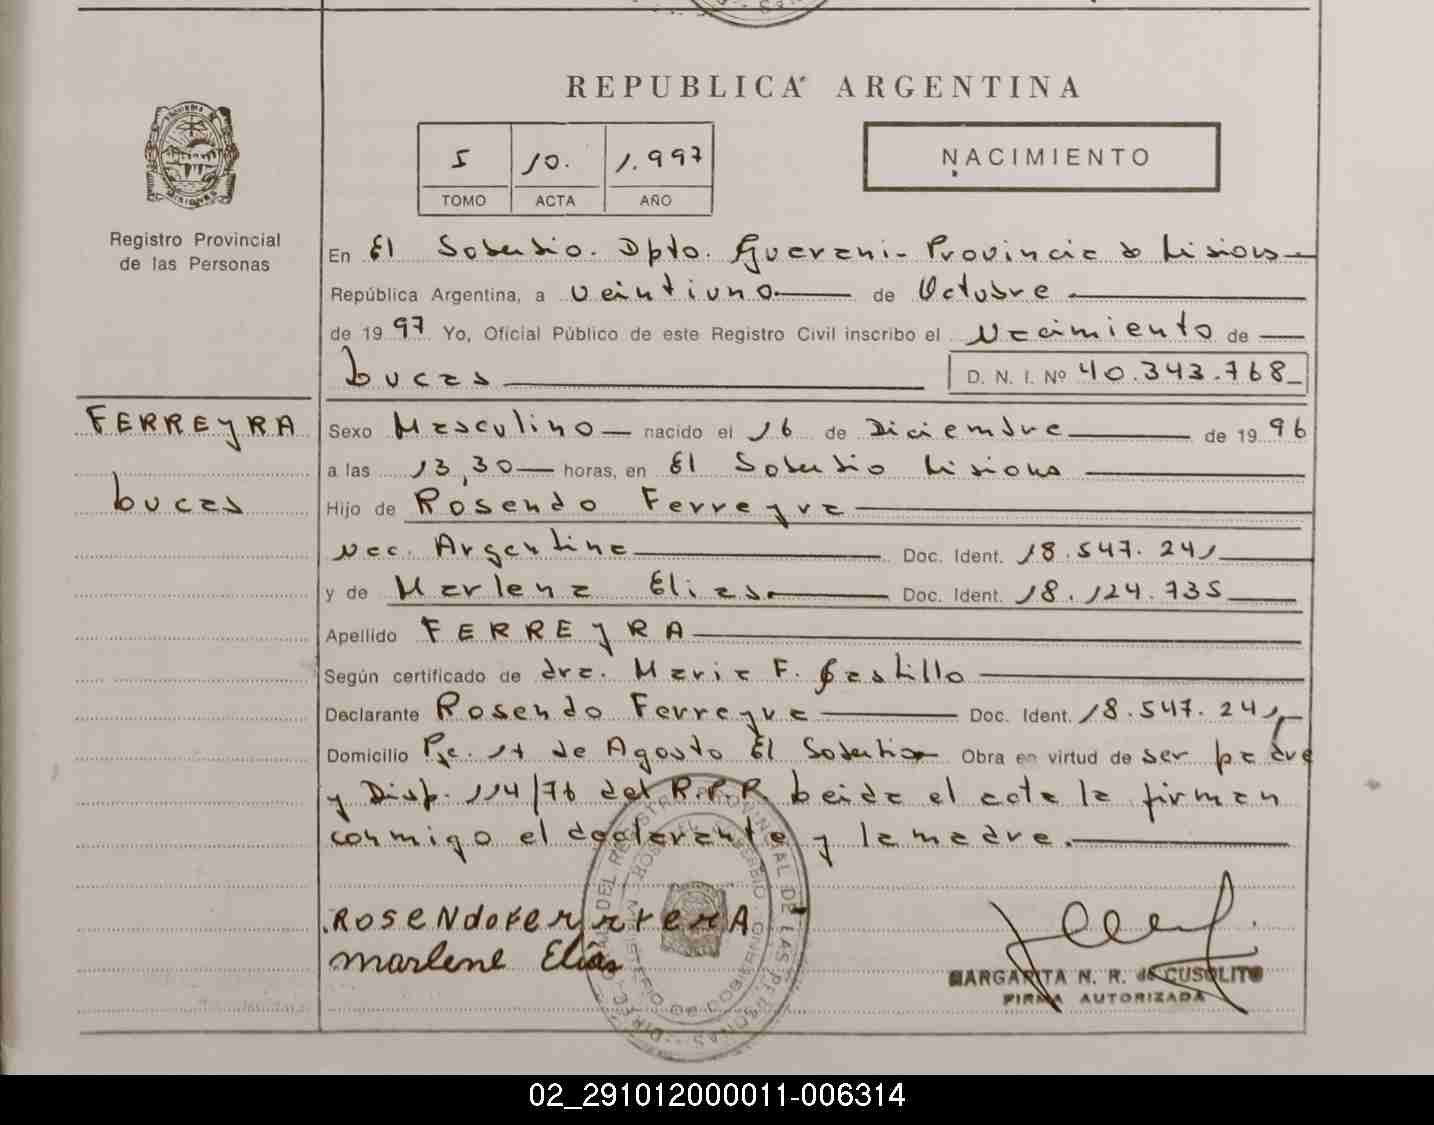 REPUBLICA ARGENTINA
5 10. 1.997
TOMO ACTA AÑO
NACIMIENTO
Registro Provincial
de las Personas
En El Soberbio. Dpto. Guarani - Provincia de Misiones
República Argentina, a veintiuno de Octubre
de 1997 Yo, Oficial Público de este Registro Civil inscribo el Nacimiento de
Lucas D. N. I. Nº 40.343.768
FERREYRA
Lucas
Sexo Masculino nacido el 16 de Diciembre de 1996
a las 13,30 horas, en El Soberbio Misiones
Hijo de Rosendo Ferreyra
Nac. Argentina Doc. Ident. 18.547.241
y de Marlene Elias Doc. Ident. 18.124.735
Apellido FERREYRA
Según certificado de dra. Maria F. Castillo
Declarante Rosendo Ferreyra Doc. Ident. 18.547.241
Domicilio Pje. 17 de Agosto El Soberbio Obra en virtud de ser padre
y Disp. 114/76 del R.P.P. Leida el acta la firman
conmigo el declarante y la madre.
Marlene Elias
MARGARITA N. R. de CUSOLITO
FIRMA AUTORIZADA
02_291012000011-006314